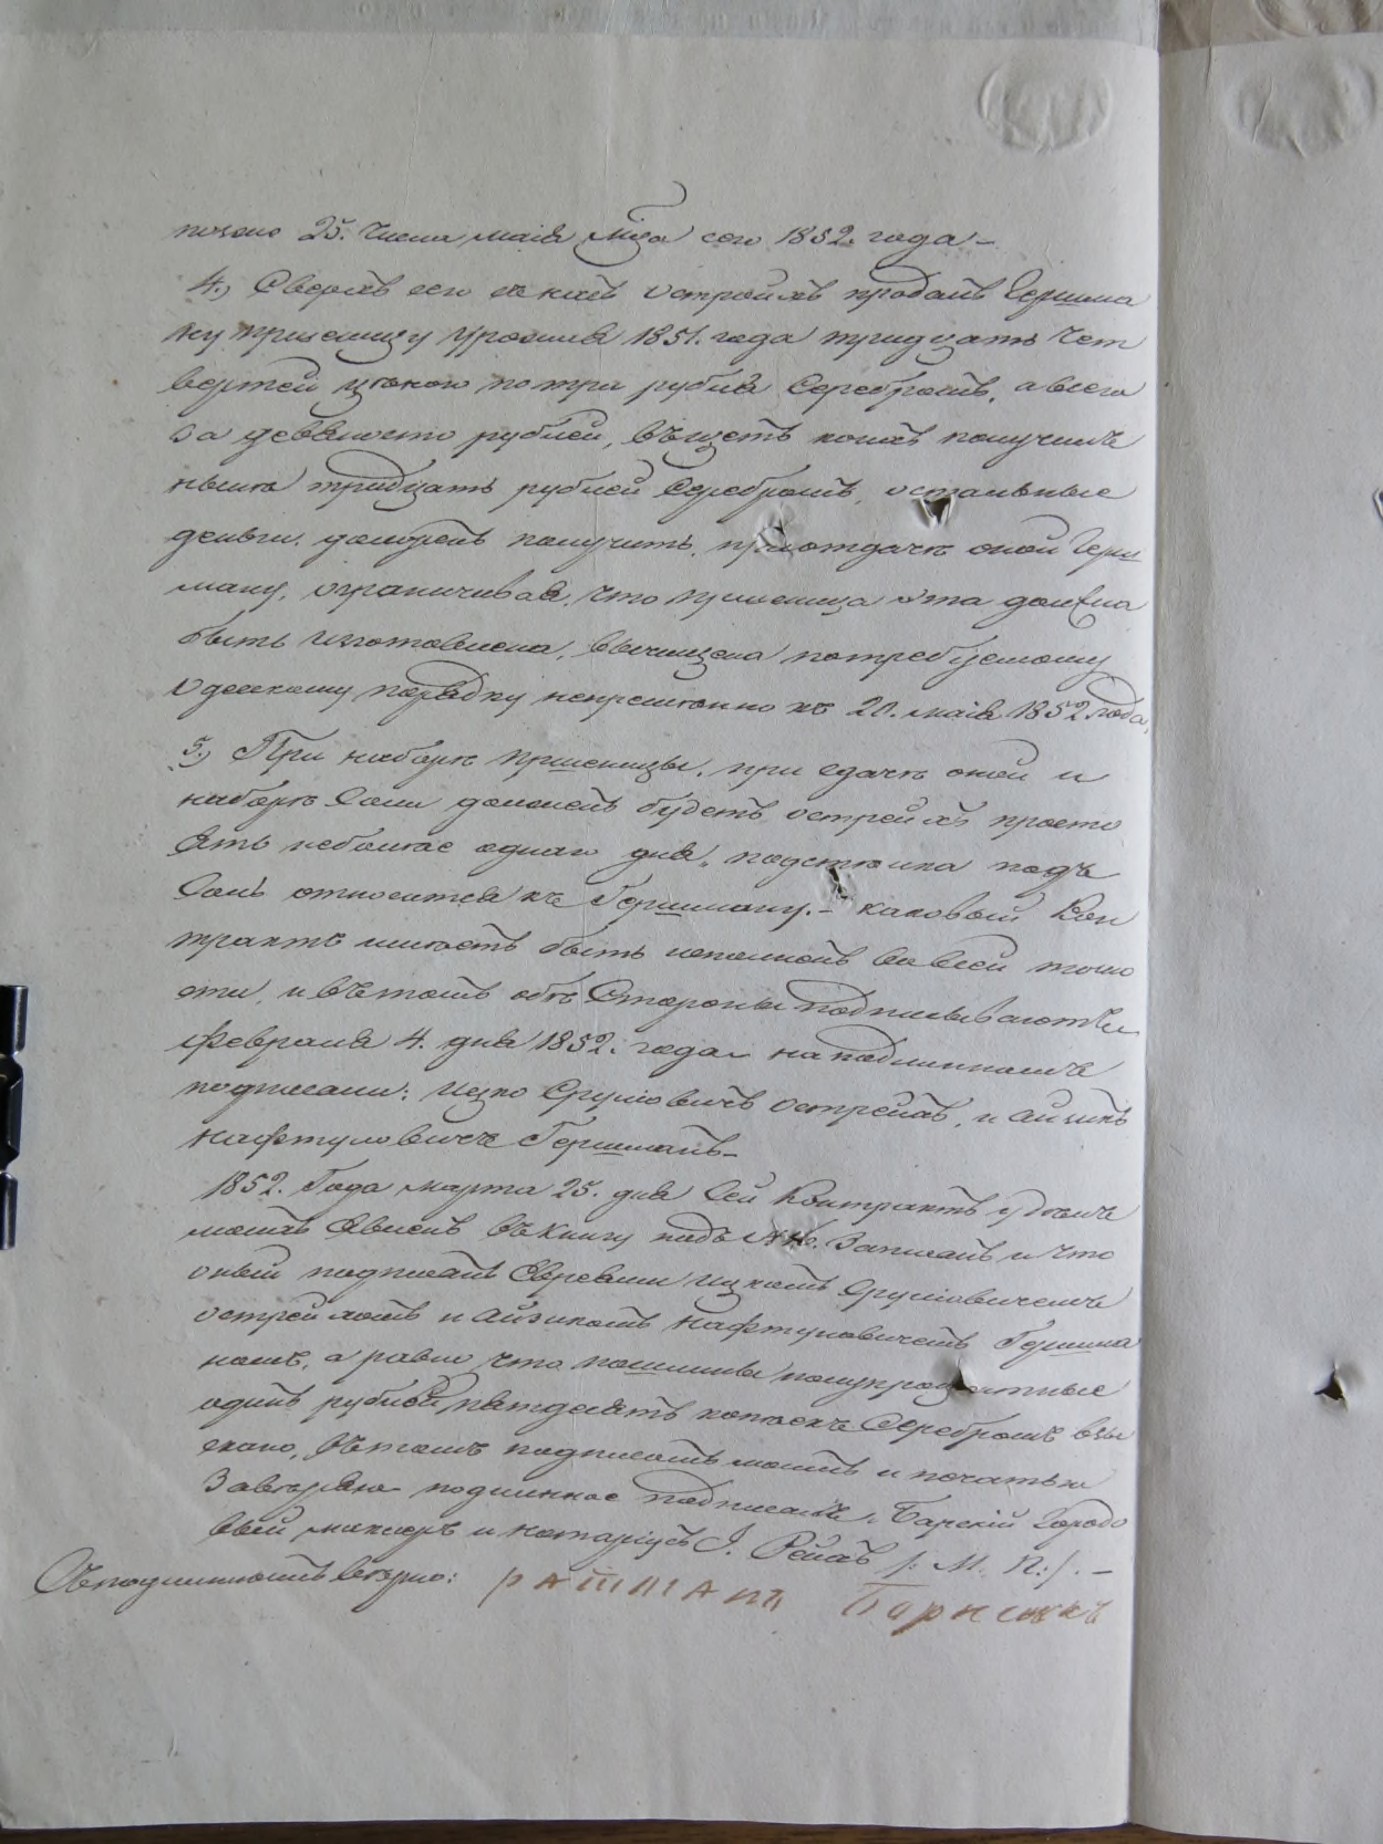 позено 25. числа маія мца сего 1852. года –
4.) Сверхъ сего онъ Острейхъ продалъ Гершма
ну пшеницу урожия 1851. года тридцать чет
вертей ценою по три рубля Серебромъ, а всего
за девяносто рублей, въ щетъ коихъ получилъ
ныне тридцать рублей Серебромъ, остальные
деньги долженъ получить при отдаче оной Герш
ману, ограничивая, что пшеница эта должна
быть изготовлена, вычищена потребуемому
Одескому порядку непременно къ 20. маія 1852 года,
5.) При наборе пшеницы, при сдаче оной и
наборе Соли долженъ будетъ Острейхъ просто
ять неболее одного дня, подстилка подъ
Соль относится къ Гершману. – каковый Кон
трактъ имеетъ быть исполненъ во всей точно
сти, и въ томъ обе Стороны подписываются
Февраля 4. дня 1852. года на подлинномъ
подписали: Ицко Сруліовичъ Острейхъ, и Айзикъ
Нафтуловичъ Гершманъ –
1852. Года марта 25. дня Сей Контрактъ у делъ
моихъ Явленъ въ Книгу подъ № Записанъ и что
оный подписанъ Евреями Ицкомъ Сруліовичемъ
Острейхомъ и Айзикомъ Нафтуловичемъ Гершма
номъ, а равно что пошлины полупроцентные
одинъ рублей пятдесятъ копеекъ Серебромъ взы
скано, въ томъ подписомъ моимъ и печатью
Заверяю подлинное подписалъ: Барскій Городо
вый маклеръ и нотаріусъ І. Рейхъ /: М. П.:/. –
Съ подлиннымъ верно: ратманъ